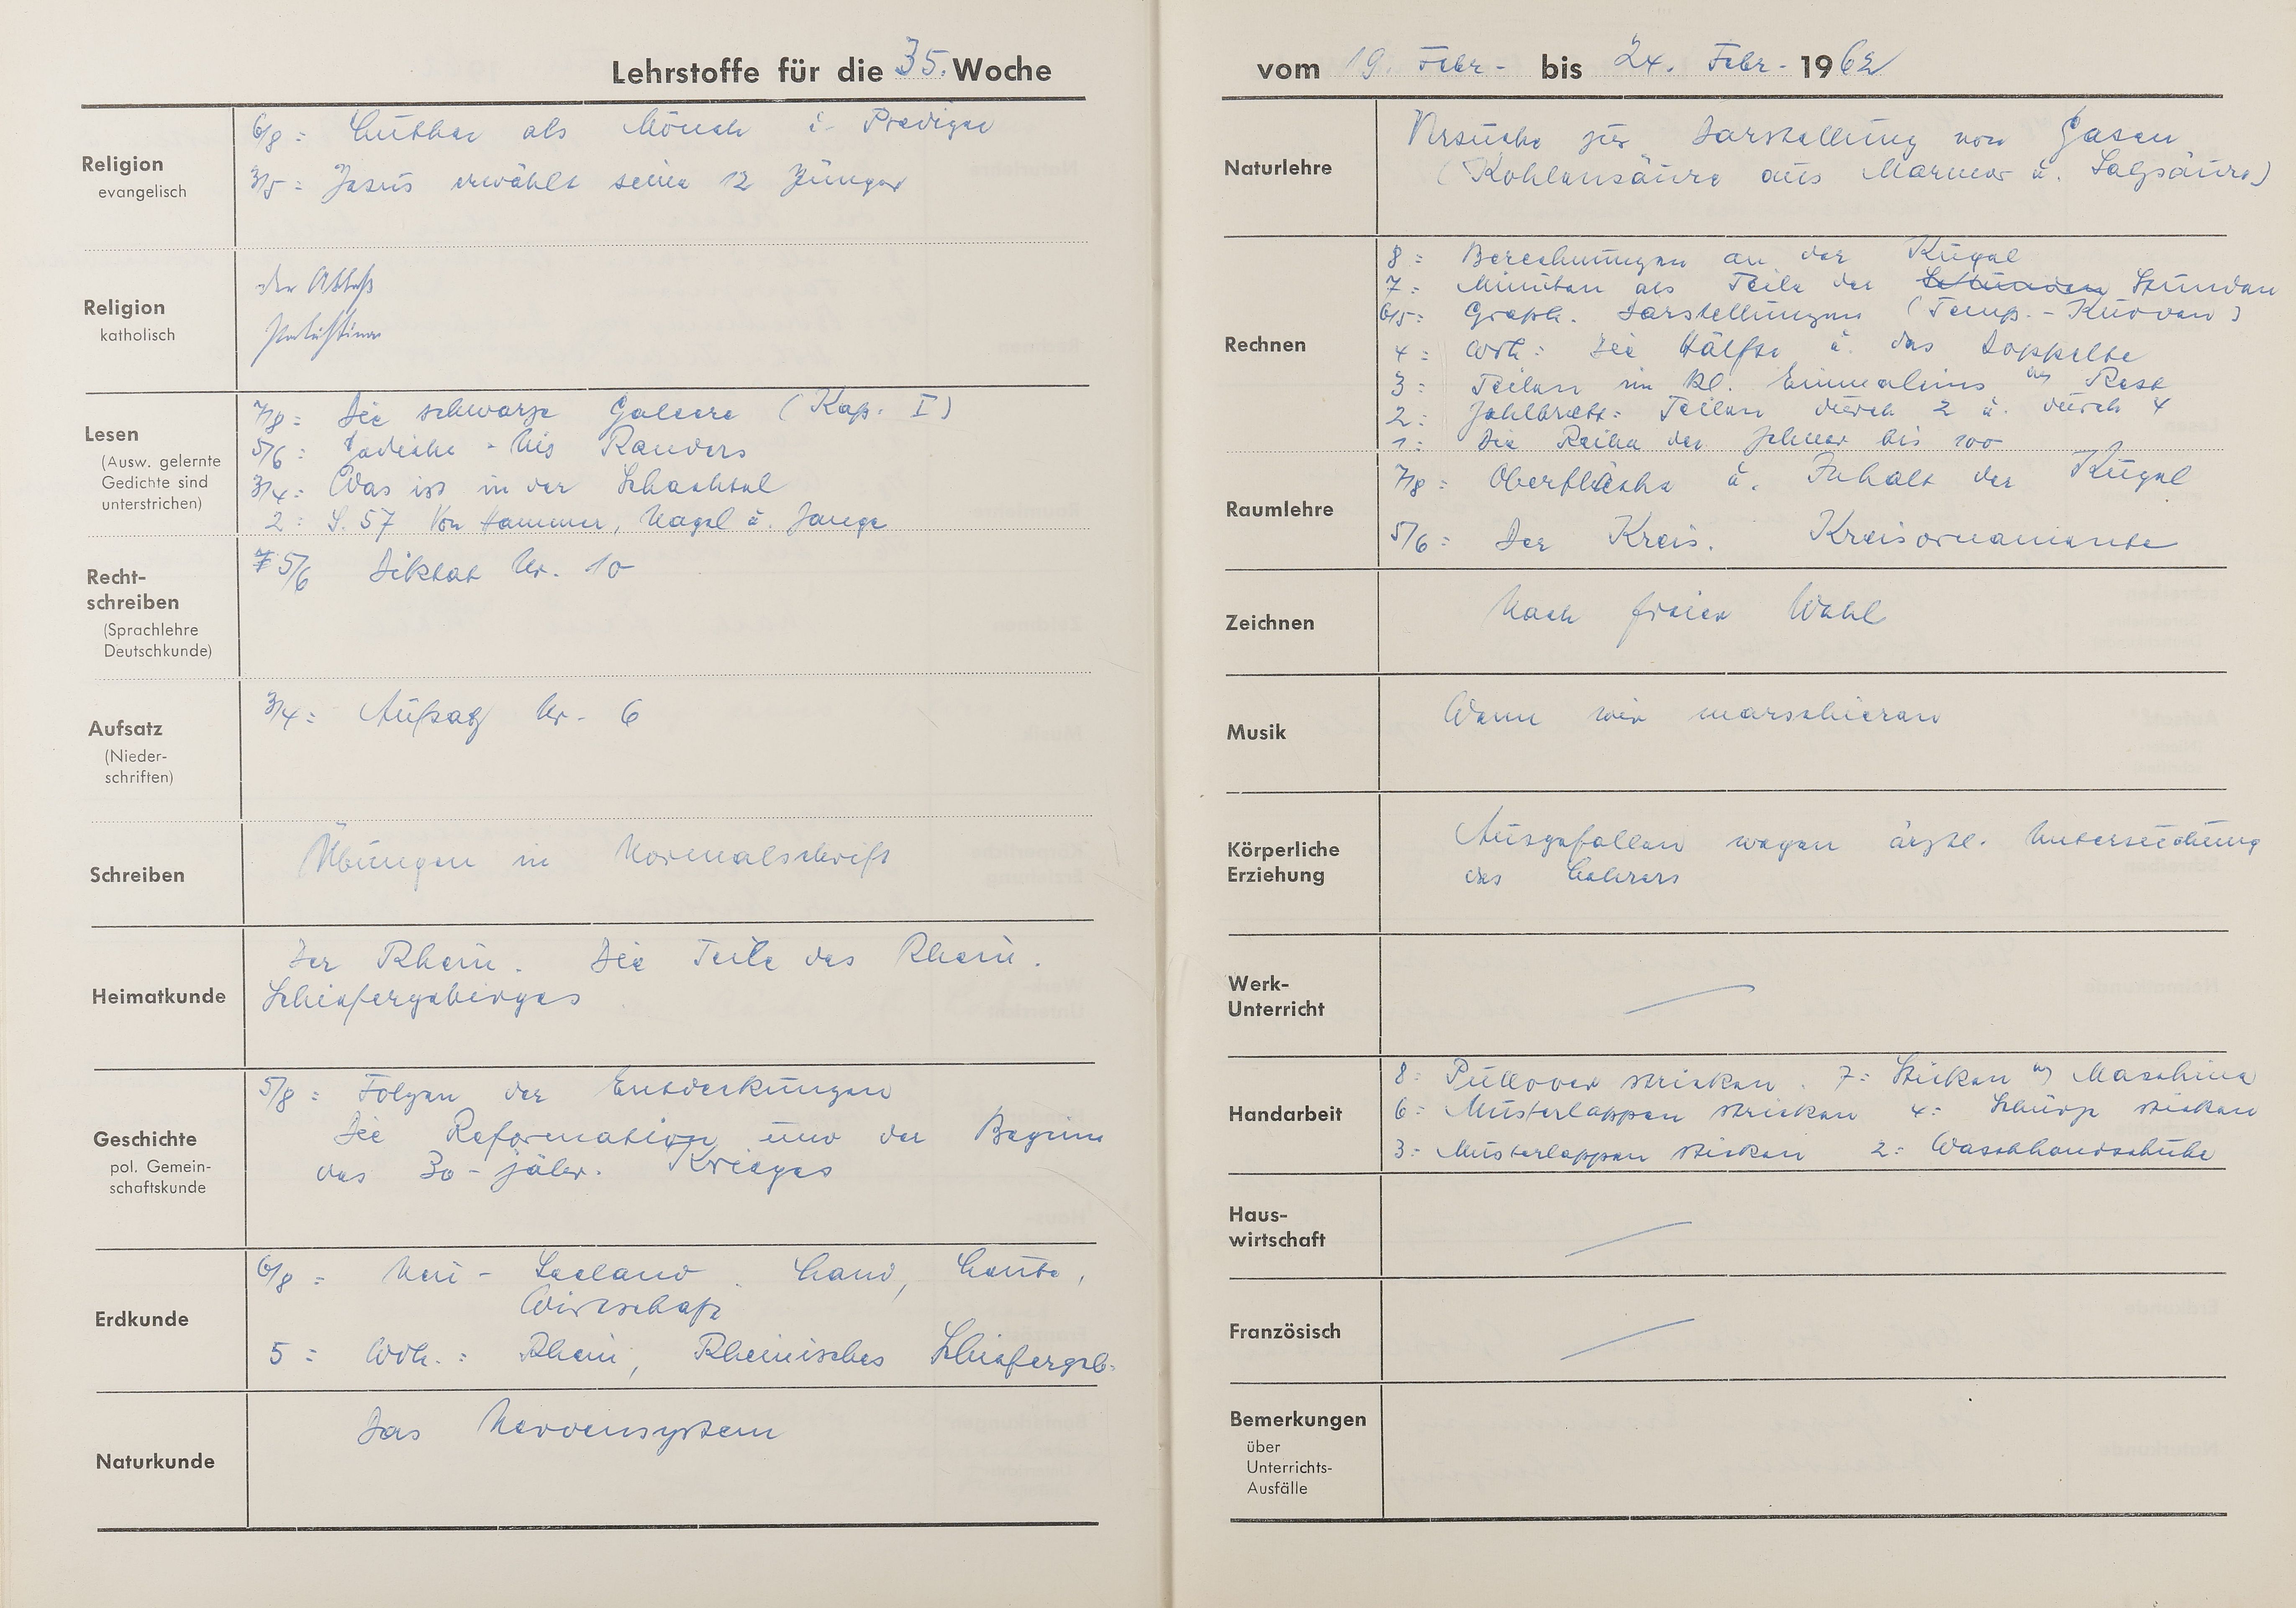 Lehrstoffe für die 35. Woche
Religion
evangelisch
6/8 = Luther als Mönch u. Prediger
3/5 = Jesus erwählt seine 12 Jünger
Religion
katholisch
der Ablaß
Palästina
Lesen
(Ausw. gelernte
Gedichte sind
unterstrichen)
7/8 = Die schwarze Galeere (Kap. I)
5/6 : - Nis Randers
3/4 = Was ist in der Schachtel
2 : S. 57 Von Hammer, Nagel u. Zange
Recht-
schreiben
(Sprachlehre
Deutschkunde)
5/6 Diktat Nr. 10
Aufsatz
(Nieder-
schriften)
3/4 = Aufsatz Nr. 6
Schreiben
Übungen in Normalschrift
Heimatkunde
Der Rhein. Die Teile des Rhein.
Schiefergebirges
Geschichte
pol. Gemein-
schaftskunde
5/8 = Folgen der Entdeckungen
Die Reformation und der Beginn
des 30-jähr. Krieges
Erdkunde
6/8 = Neu-Seeland. Land, Leute,
Wirtschaft
5 = Wdh. : Rhein, Rheinisches Schiefergeb.
Naturkunde
Das Nervensystem
vom 19. Febr. bis 24. Febr. 1962
Naturlehre
Versuche zur Darstellung von Gasen
(Kohlensäure aus Marmor u. Salzsäure)
Rechnen
8 = Berechnungen an der Kugel
7 = Minuten als Teile der Stunden
6/5 = Graph. Darstellungen (Temp.-Kurven)
4 = Wdh: Die Hälfte u. das Doppelte
3 = Teilen im Kl. Einmaleins m Rest
2 : Zahlbretts: Teilen durch 2 u. durch 4
1 : Die Reihe der Zehner bis 100
Raumlehre
7/8 = Oberfläche u. Inhalt der Kugel
5/6 = Der Kreis. Kreisornamente
Zeichnen
Nach freier Wahl
Musik
Wenn wir marschieren
Körperliche
Erziehung
Ausgefallen wegen ärztl. Untersuchung
des Lehrers
Werk-
Unterricht
Handarbeit
8 : Pullover stricken. 7 = Sticken m Maschine
6 = Musterlappen stricken 4 = Schürze sticken
3 = Musterlappen sticken 2 = Waschhandschuhe
Haus-
wirtschaft
Französisch
Bemerkungen
über
Unterrichts-
Ausfälle